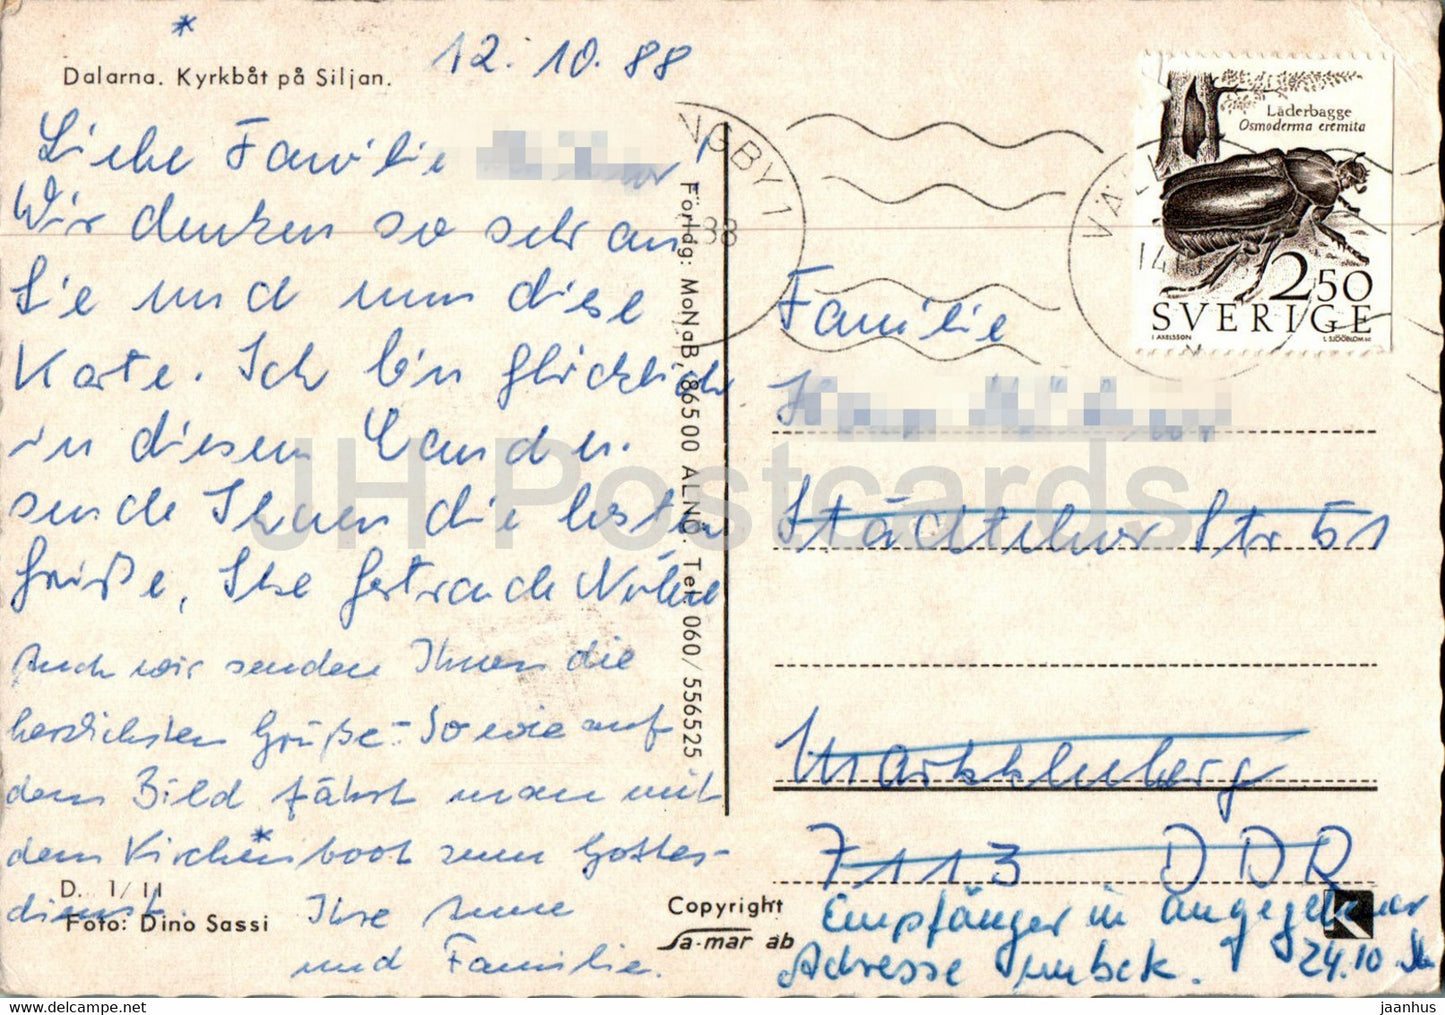 *
Dalarna. Kyrkbåt på Siljan.
12. 10. 88
Liebe Familie
Wir denken so sehr an
Sie und nun diese
Karte. Ich bin glücklich
in diesem Lande u.
sende Ihnen die besten
Grüße, Ihre Gertraude
Auch wir senden Ihnen die
herzlichsten Grüße - So wie auf
dem Bild fährt man mit
dem Kirchenboot zum Gottes-
dienst. Ihre
und Familie.
*
D. 1/11
Foto: Dino Sassi
Förldg: MoNaB, 86500 ALNÖ. Tel. 060/556525
Copyright
sa-mar ab
NGBY 1
88
VÄ
14
Läderbagge
Osmoderma eremita
2.50
SVERIGE
I. AXELSSON
L. SJÖÖBLOM sc
Familie
Städtelner Str 51
Markkleeberg
7113 DDR
Empfänger in angegebener
Adresse unbek.
24.10
K
JH Postcards
www.delcampe.net
jaanhus